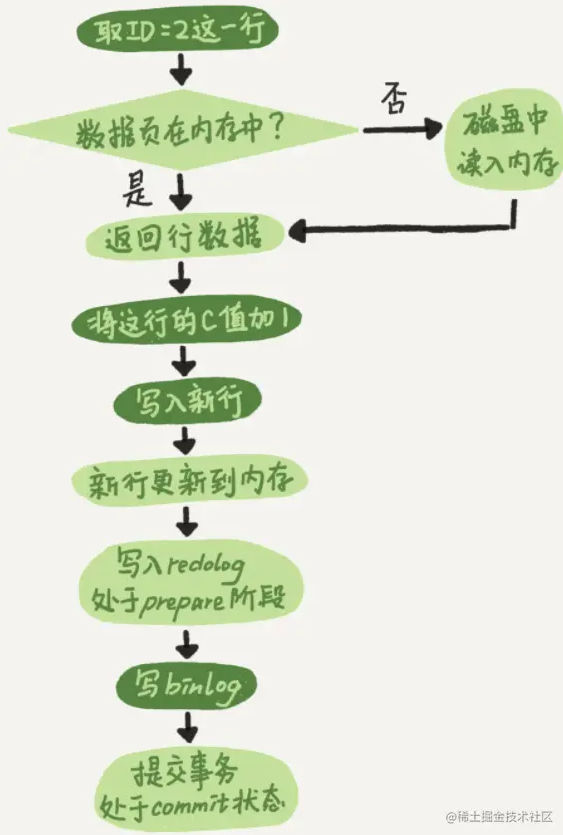 取ID=2这一行
数据页在内存中?
否
磁盘中
读入内存
是
返回行数据
将这行的C值加1
写入新行
新行更新到内存
写入redolog
处于prepare阶段
写binlog
提交事务
处于commit状态
@稀土掘金技术社区